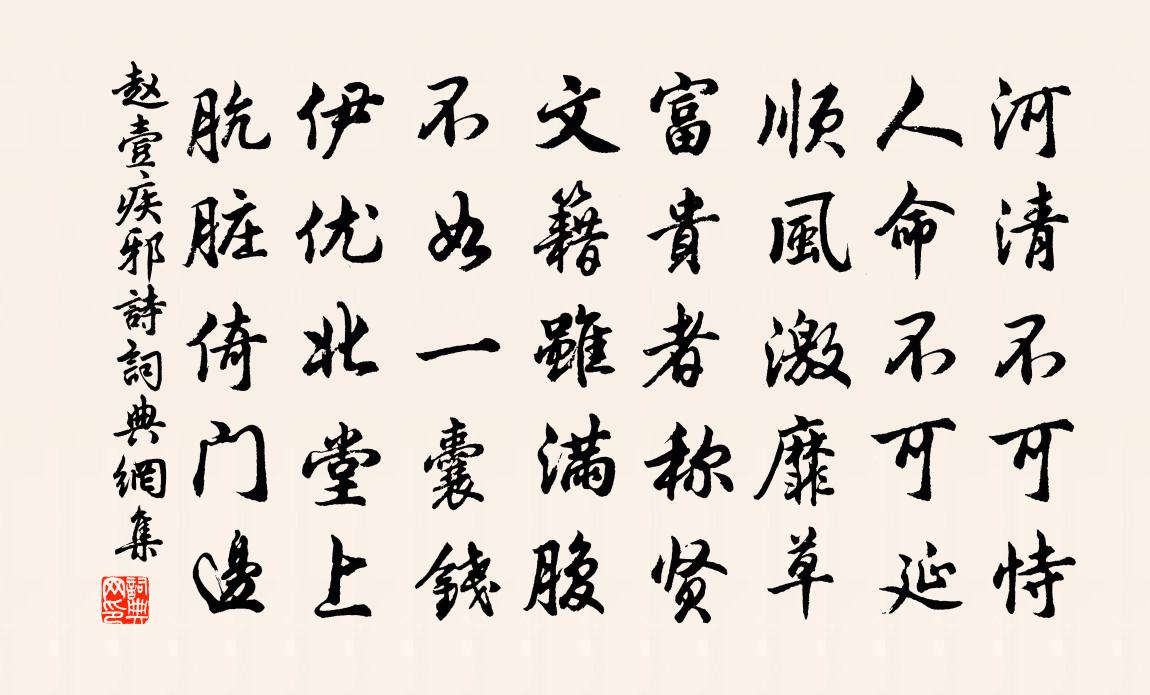 河清不可恃
人命不可延
順風激靡草
富貴者称贤
文籍雖满腹
不如一囊錢
伊优北堂上
肮脏倚门邊
赵壹疾邪詩詞典網集
詞典网印